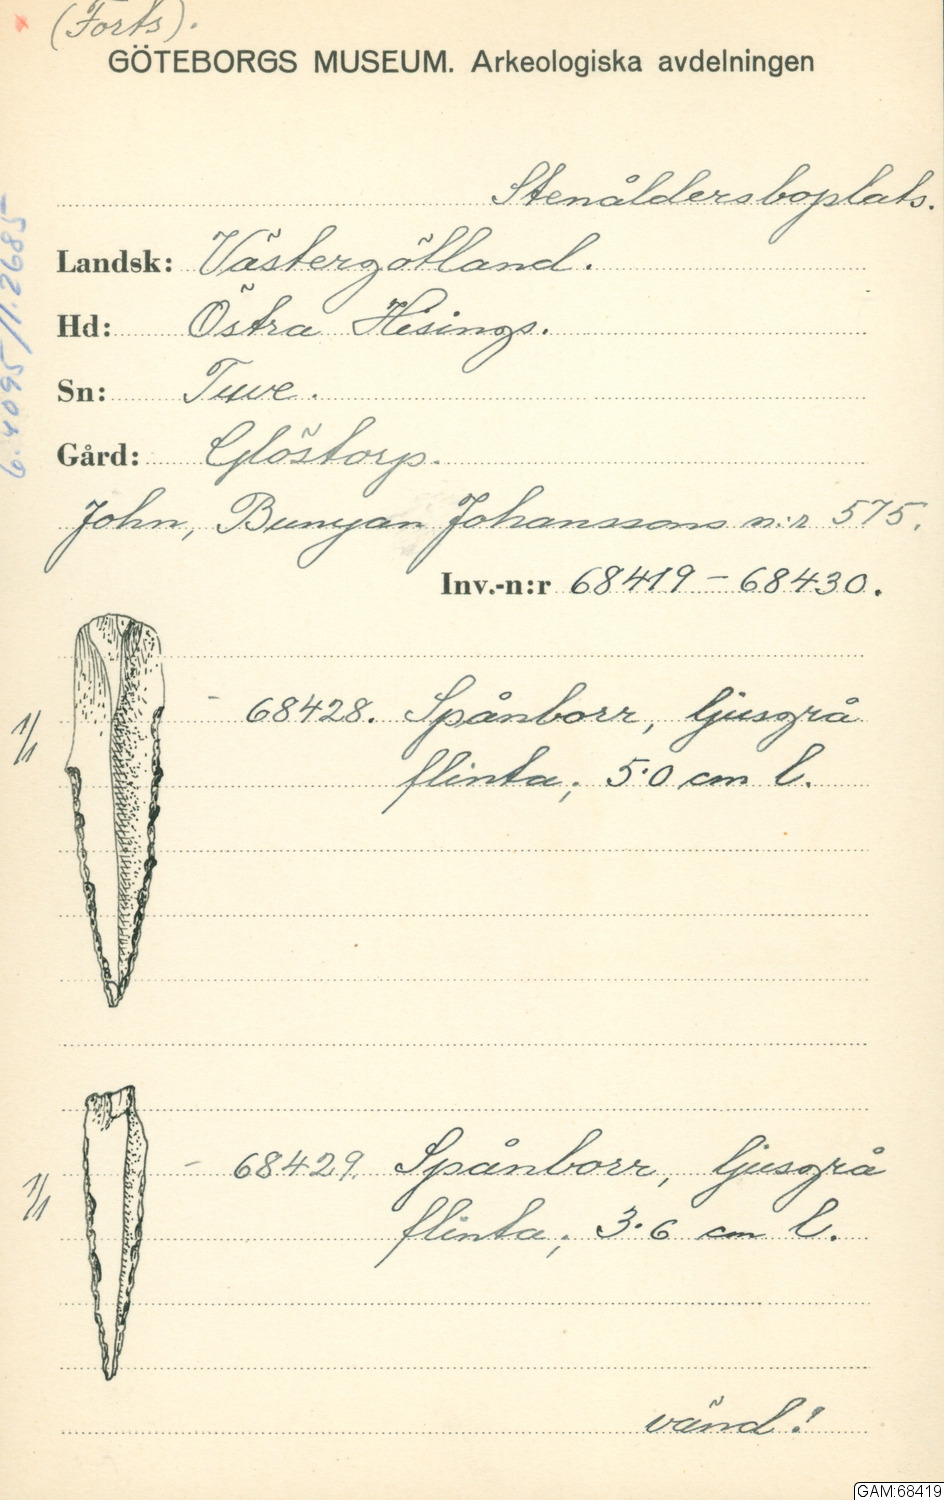 (Forts).
GÖTEBORGS MUSEUM. Arkeologiska avdelningen
Stenåldersboplats.
Landsk: Västergötland.
Hd: Östra Hisings.
Sn: Tuve.
Gård: Glöstorp.
John, Bunyan Johanssons n:r 575.
Inv.-n:r 68419 – 68430.
6.4095/1.2685
1/1
– 68428. Spånborr, ljusgrå
flinta; 5.0 cm l.
1/1
– 68429. Spånborr, ljusgrå
flinta; 3.6 cm l.
vänd!
GAM:68419